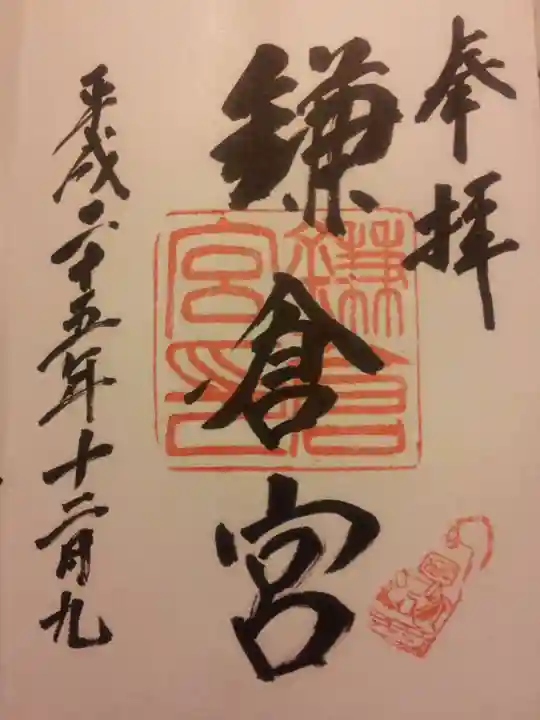 奉拝
鎌倉宮
平成二十五年十二月九
鎌倉宮印